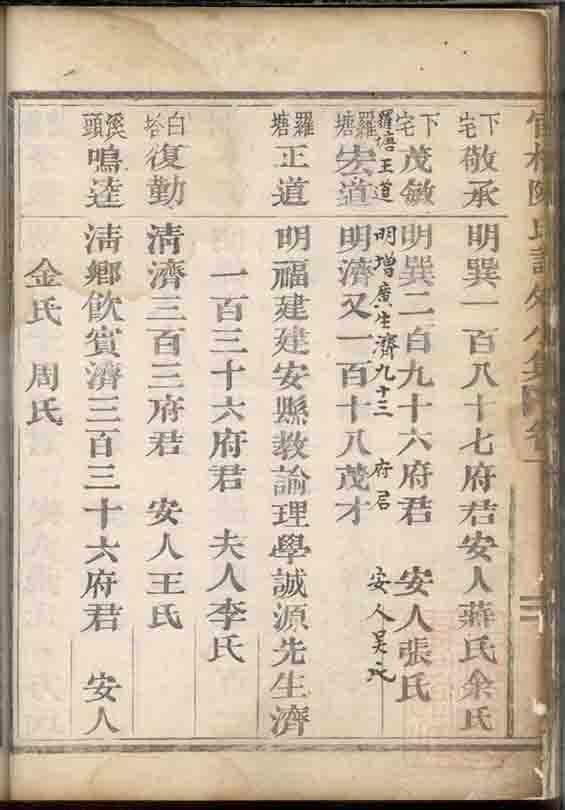 下宅 敬承 明巽一百八十七府君安人蔣氏余氏
下宅 茂敏 明巽二百九十六府君 安人張氏
羅塘 王道 明增廣生濟九十三 府君 安人吴氏
羅塘 宏道 明濟又一百十八茂才
羅塘 正道 明福建建安縣教諭理學誠源先生濟
一百三十六府君 夫人李氏
白塔 復勤 清濟三百三府君 安人王氏
溪頭 鳴逵 清鄉飲賓濟三百三十六府君 安人
金氏 周氏